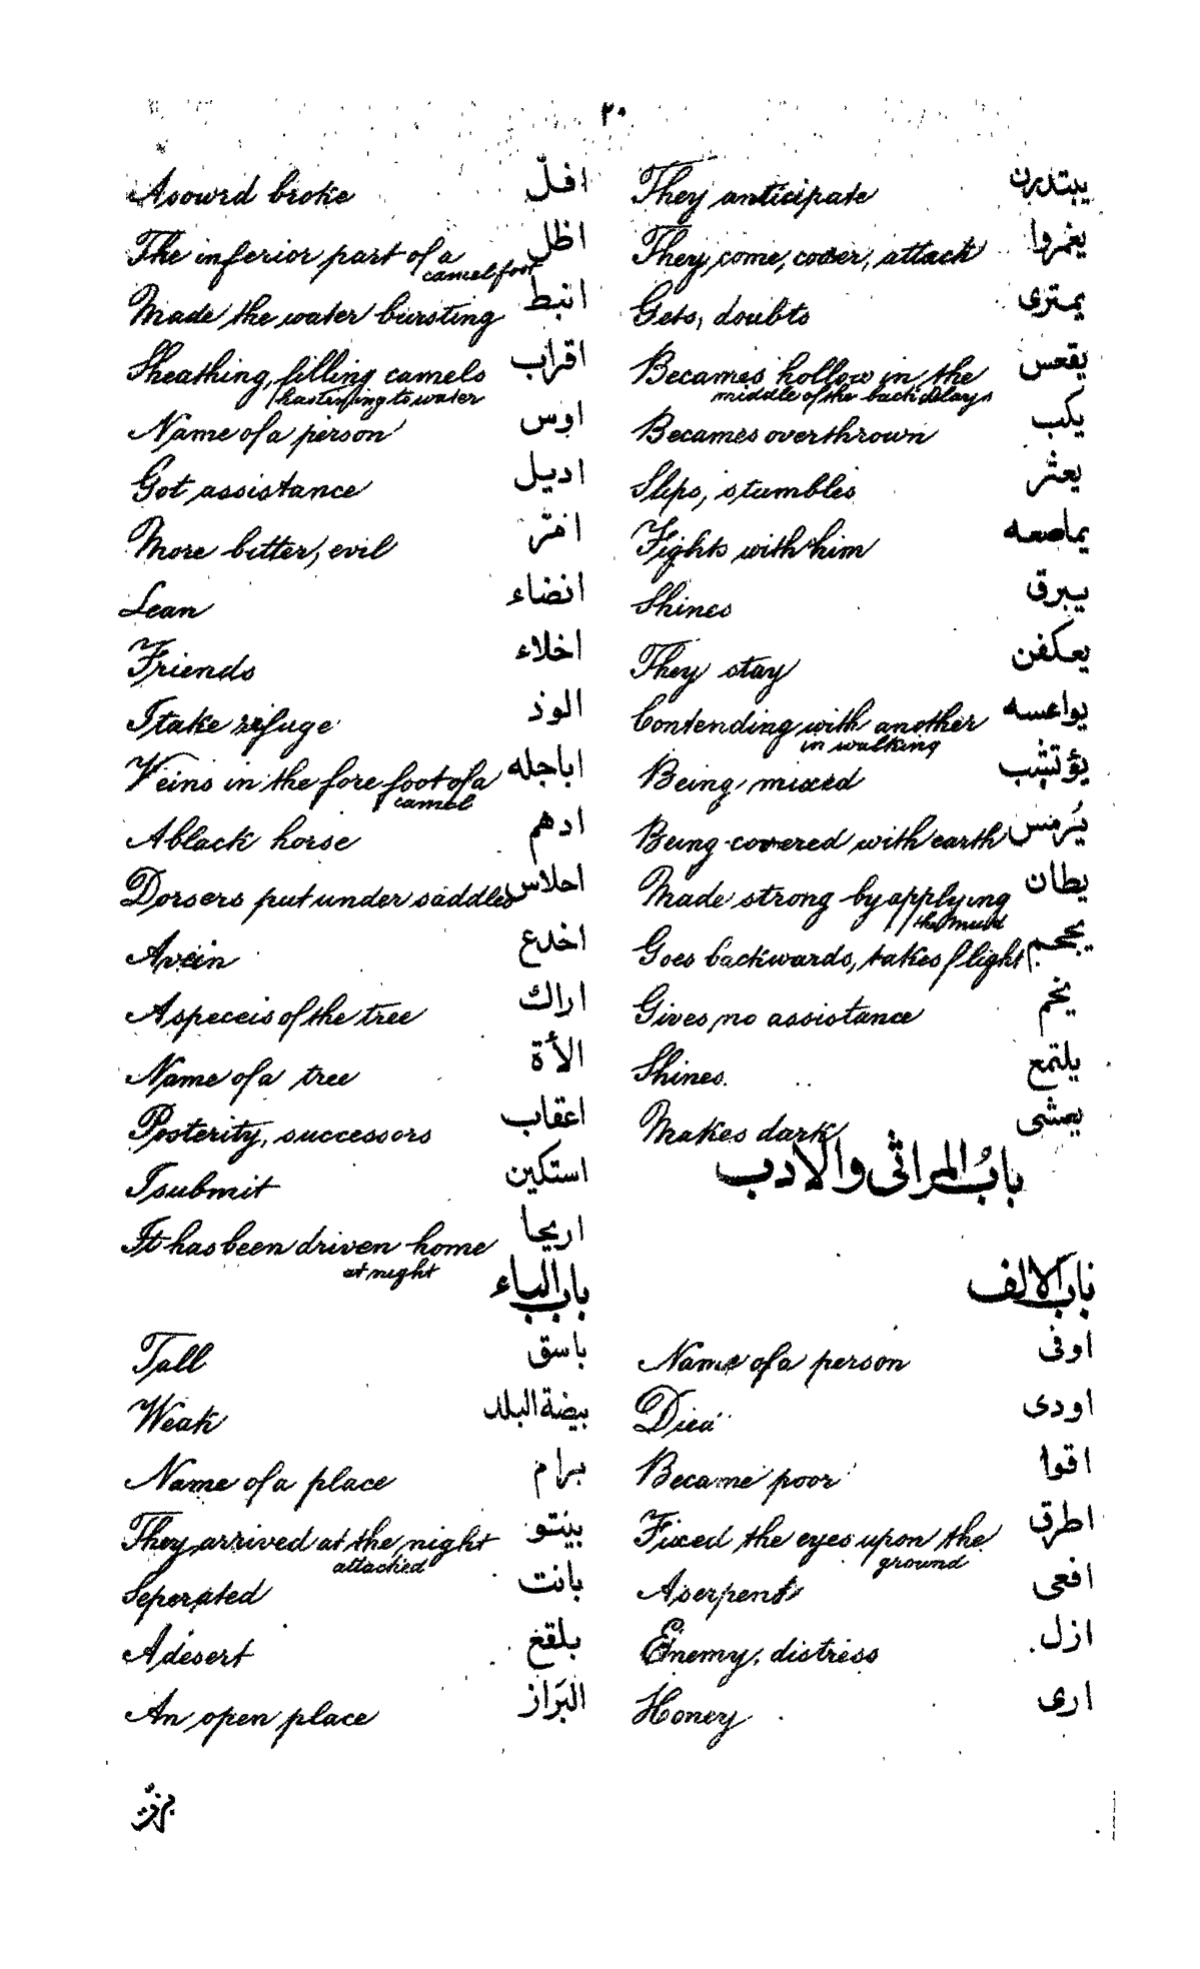 ٢٠
يبتدرن They anticipate
يغمروا They, come, cover, attack
يمترى Gets, doubts
يقعس Becames hollow in the
middle of the back delays
يكب Becames overthrown
يعثر Slips, stumbles
يماصعه Fights with him
يبرق Shines
يعكفن They stay
يواعسه Contending with another
in walking
يؤتشب Being mixed
يُرمس Being covered with earth
يطان Made strong by applying
the mud
يججم Goes backwards, takes flight
يخم Gives no assistance
يلتمع Shines.
يعشى Makes dark
بابُ المراثى والادب
باب الالف
اوفى Name of a person
اودى Died
اقوا Became poor
اطرق Fixed the eyes upon the
ground
افعى A serpent
ازل Enemy, distress
ارى Honey
افلّ A sowrd broke
اظل The inferior part of a
camel foot
انبط Made the water bursting
اقراب Sheathing, filling camels
hastening to water
اوس Name of a person
اديل Got assistance
امرّ More bitter, evil
انضاء Lean
اخلاء Friends
الوذ I take refuge
اباجله Veins in the fore foot of a
camel
ادهم A black horse
احلاس Dorsers put under saddles
اخدع A vein
اراك A speceis of the tree
الأة Name of a tree
اعقاب Posterity, successors
استكين I submit
اريحا It has been driven home
at night
باب الباء
باسق Tall
بيضة البلد Weak
برام Name of a place
بيتو They arrived at the night
attached
بانت Seperated
بلقغ A desert
البَراز An open place